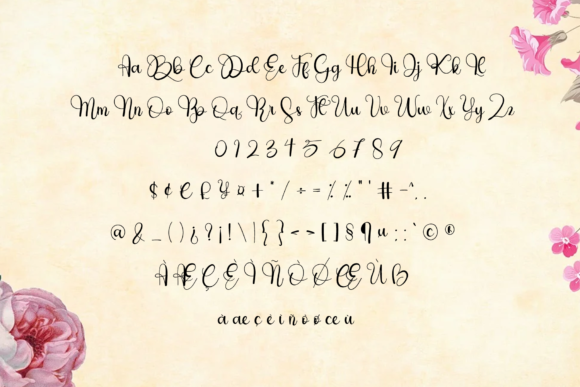 Aa Bb Cc Dd Ee Ff Gg Hh Ii Jj Kk Ll
Mm Nn Oo Pp Qq Rr Ss Tt Uu Vv Ww Xx Yy Zz
0 1 2 3 4 5 6 7 8 9
$ ¢ £ ¥ ¤ + * / ÷ = % " ' # - ^ , .
@ & _ ( ) ¿ ? ¡ ! \ | { } < > [ ] § ¶ µ : ; ` © ®
À Æ Ç È Ì Ñ Ò Ø Œ Ù ß
à æ ç è ì ñ ò ø œ ù